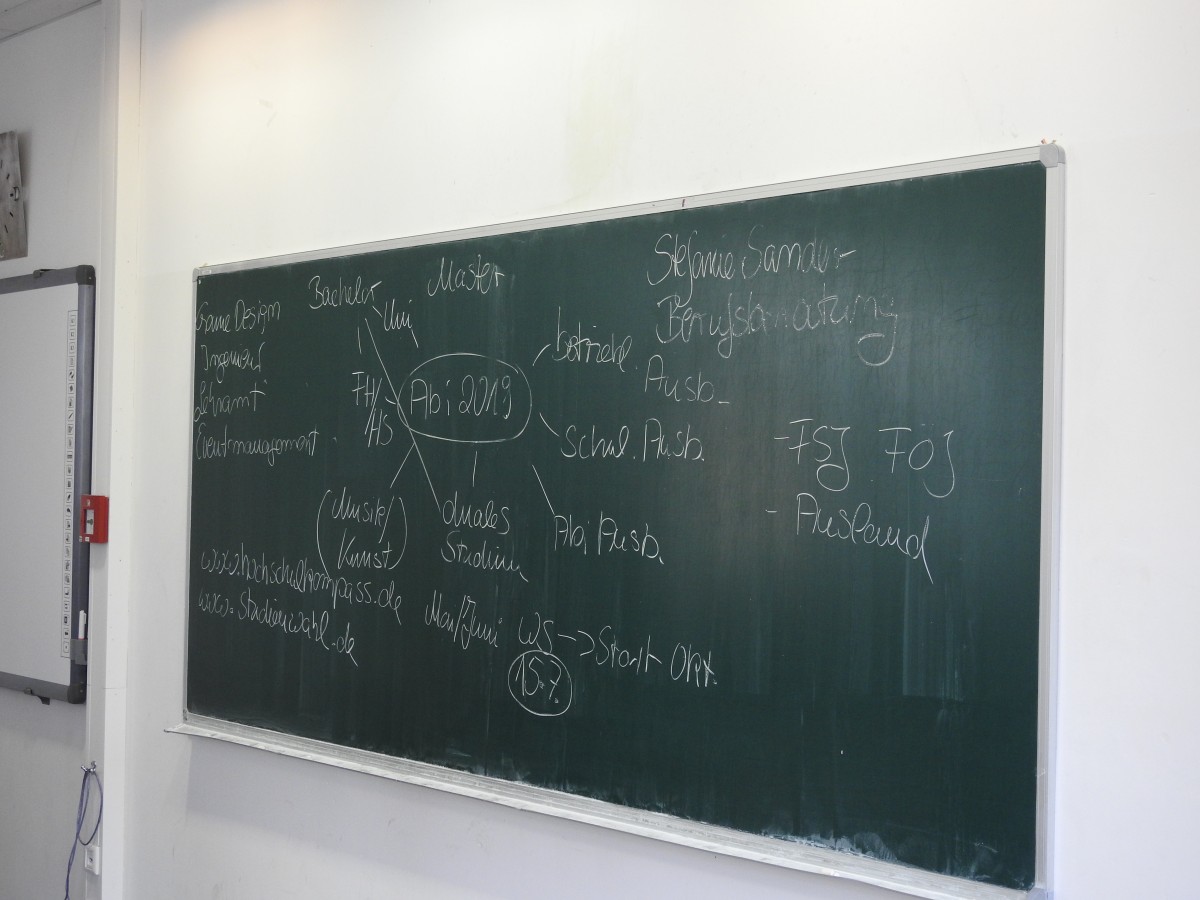 Stefanie Sander
Berufsberatung
Bachelor
Master
Uni
Game Design
Ingenieur
Lehramt
Eventmanagement
FH/
HS
Abi 2019
betriebl.
Ausb.
schul. Ausb.
Abi Ausb.
duales
Studium
(Musik/
Kunst)
- FSJ FÖJ
- Ausland
www.hochschulkompass.de
www.Studienwahl.de
Mai/Juni
WS -> Start Okt.
15.7.